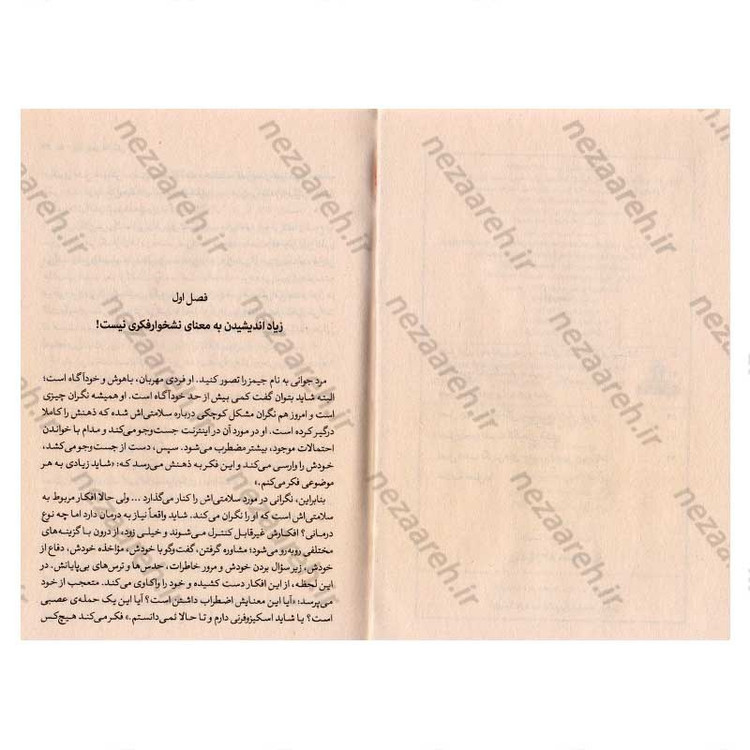 فصل اول
زیاد اندیشیدن به معنای نشخوارفکری نیست!
مرد جوانی به نام جیمز را تصور کنید. او فردی مهربان، باهوش و خودآگاه است؛
البته شاید بتوان گفت کمی بیش از حد خودآگاه است. او همیشه نگران چیزی
است و امروز هم نگران مشکل کوچکی درباره سلامتی‌اش شده که ذهنش را کاملا
درگیر کرده است. او در مورد آن در اینترنت جست‌وجو می‌کند و مدام با خواندن
احتمالات موجود، بیشتر مضطرب می‌شود. سپس، دست از جست‌وجو می‌کشد،
خودش را وارسی می‌کند و این فکر به ذهنش می‌رسد که: «شاید زیادی به هر
موضوعی فکر می‌کنم.»
بنابراین، نگرانی در مورد سلامتی‌اش را کنار می‌گذارد ... ولی حالا افکار مربوط به
سلامتی‌اش است که او را نگران می‌کند. شاید واقعاً نیاز به درمان دارد اما چه نوع
درمانی؟ افکارش غیرقابل کنترل می‌شوند و خیلی زود، از درون با گزینه‌های
مختلفی روبه‌رو می‌شود؛ مشاوره گرفتن، گفت‌وگو با خودش، مؤاخذه خودش، دفاع از
خودش، زیر سؤال بردن خودش و مرور خاطرات، حدس‌ها و ترس‌های بی‌پایانش. در
این لحظه، از این افکار دست کشیده و خود را واکاوی می‌کند. متعجب از خود
می‌پرسد: «آیا این معنایش اضطراب داشتن است؟ آیا این یک حمله‌ی عصبی
است؟ یا شاید اسکیزوفرنی دارم و تا حالا نمی‌دانستم.» فکر می‌کند هیچ‌کس
nezaareh.ir
nezaareh.ir
nezaareh.ir
nezaareh.ir
nezaareh.ir
nezaareh.ir
nezaareh.ir
nezaareh.ir